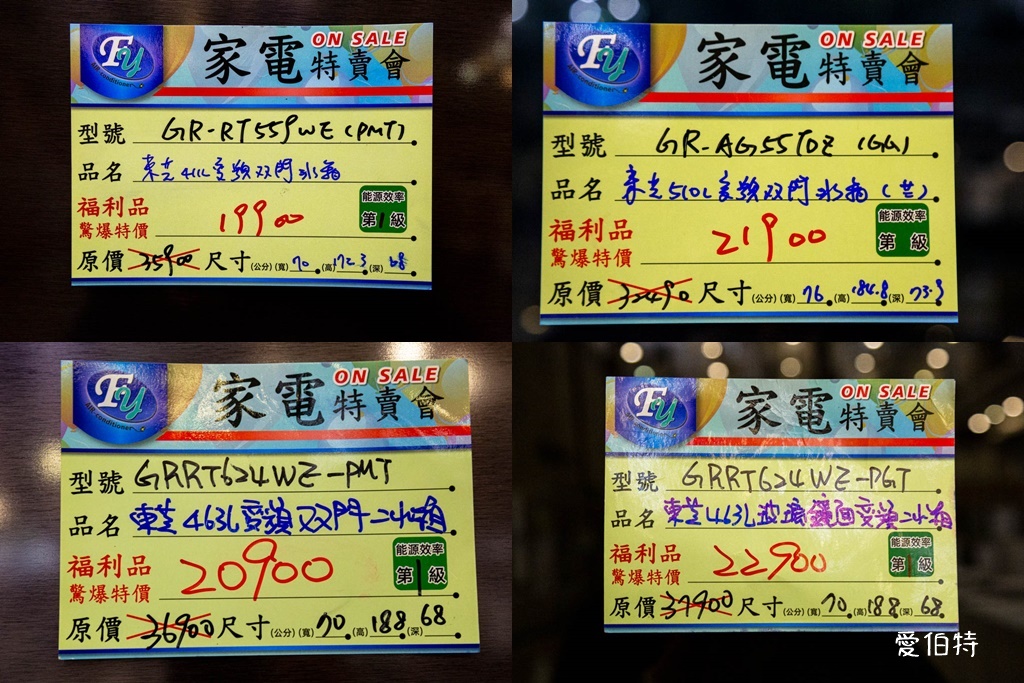 Fy
Air Conditioner
家電特賣會
ON SALE
型號 GR-RT559WE(PMT)
品名 東芝411L變頻双門冰箱
福利品
驚爆特價 19900
能源效率
第1級
原價 35900 尺寸(公分)(寬)70(高)172.3(深)68
Fy
Air Conditioner
家電特賣會
ON SALE
型號 GR-AG55TDZ (GG)
品名 東芝510L變頻双門冰箱
福利品
驚爆特價 21900
能源效率
第 級
原價 32490 尺寸(公分)(寬)76(高)184.8(深)73.9
Fy
Air Conditioner
家電特賣會
ON SALE
型號 GRRT624WE-PMT
品名 東芝463L變頻双門冰箱
福利品
驚爆特價 20900
能源效率
第1級
原價 36900 尺寸(公分)(寬)70(高)188(深)68
Fy
Air Conditioner
家電特賣會
ON SALE
型號 GRRT624WE-PGT
品名 東芝463L玻璃鏡面變頻冰箱
福利品
驚爆特價 22900
能源效率
第1級
原價 37900 尺寸(公分)(寬)70(高)188(深)68
愛伯特